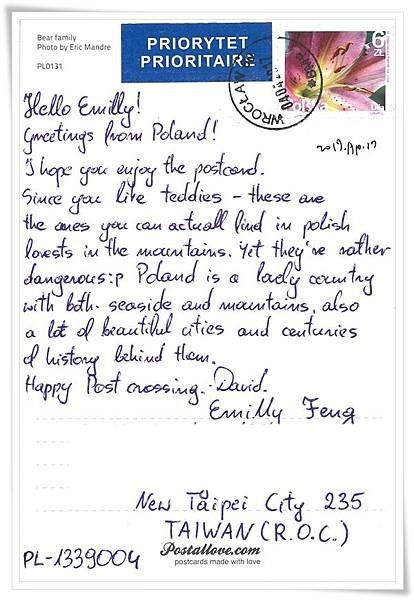 Bear family
Photo by Eric Mandre
PL0131
PRIORYTET
PRIORITAIRE
6
ZŁ
WROCŁAW
olska
2017.Ap.17
Hello Emilly!
Greetings from Poland!
I hope you enjoy the postcard.
Since you like teddies - these are
the ones you can actuall find in polish
forests in the mountains. Yet they've rather
dangerous :p Poland is a lady country
with both seaside and mountains, also
a lot of beautiful cities and centuries
of history behind them.
Happy Post crossing. David.
Emilly Feng
New Taipei City 235
TAIWAN (R.O.C.)
Postallove.com
postcards made with love
PL-1339004